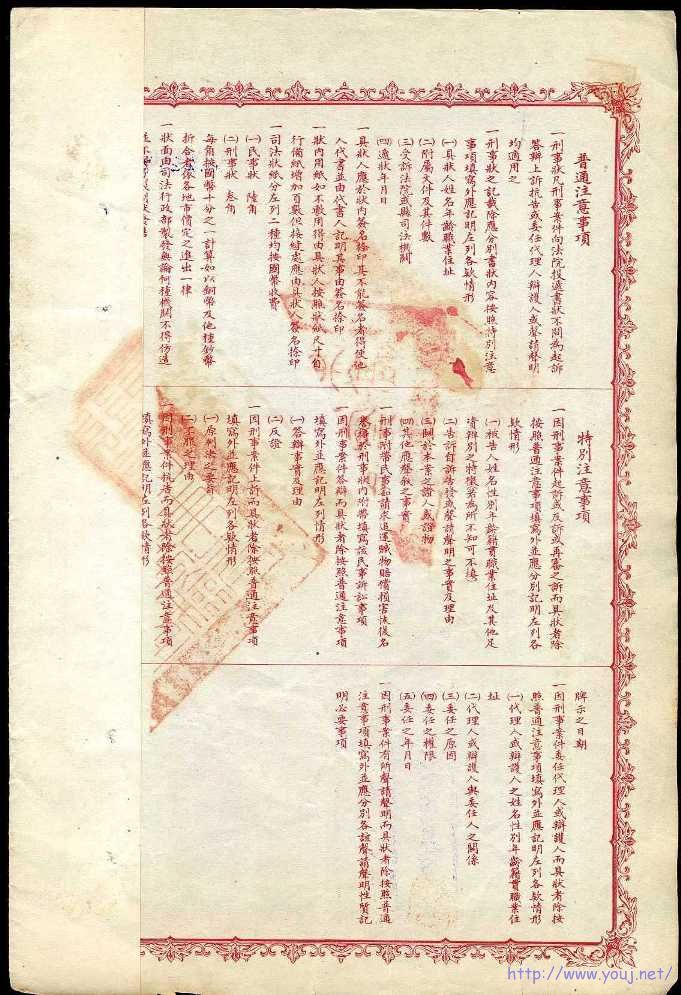 普通注意事項
一刑事狀凡刑事案件向法院投遞書狀不問為起訴
答辯上訴抗告或委任代理人辯護人或聲請聲明
均適用之
一刑事狀之記載除應分別書狀內容按照特別注意
事項填寫外應記明左列各欵情形
㈠具狀人姓名年齡職業住址
㈡附屬文件及其件數
㈢受訴法院或縣司法機關
㈣遞狀年月日
一具狀人應於狀內簽名捺印其不能簽名者得使他
人代書並由代書人記明其事由簽名捺印
一狀內用紙如不敷用得由具狀人按照狀紙尺寸自
行備紙增加頁數但接縫處應由具狀人簽名捺印
一司法狀紙分左列二種均按國幣收費
㈠民事狀 陸角
㈡刑事狀 叁角
每角按國幣十分之一計算如以銅幣及他種鈔幣
折合者依各地市價定之進出一律
一狀面由司法行政部製發無論何種機關不得仿造
特別注意事項
一因刑事案件起訴或反訴或再審之訴而具狀者除
按照普通注意事項填寫外並應分別記明左列各
欵情形
㈠被告人姓名性別年齡籍貫職業住址及其他足
資辨別之特徵若為所不知可不填
㈡告訴自訴告發或聲請聲明之事實及理由
㈢關於本案之證人或證物
㈣其他應聲敘之事實
一刑事附帶民事訴訟請求追還贓物賠償損害恢復名
譽得於刑事狀內附帶填寫該民事訴訟事項
一因刑事案件答辯而具狀者除按照普通注意事項
填寫外並應記明左列情形
㈠答辯事實及理由
㈡反證
一因刑事案件上訴而具狀者除按照普通注意事項
填寫外並應記明左列各欵情形
㈠原判決之要旨
㈡不服之理由
一因刑事案件抗告而具狀者除按照普通注意事項
填寫外並應記明左列各欵情形
牌示之日期
一因刑事案件委任代理人或辯護人而具狀者除按
照普通注意事項填寫外並應記明左列各欵情形
㈠代理人或辯護人之姓名性別年齡籍貫職業住
址
㈡代理人或辯護人與委任人之關係
㈢委任之原因
㈣委任之權限
㈤委任之年月日
一因刑事案件有所聲請聲明而具狀者除按照普通
注意事項填寫外並應分別各該聲請聲明性質記
明必要事項
http://www.youj.net/